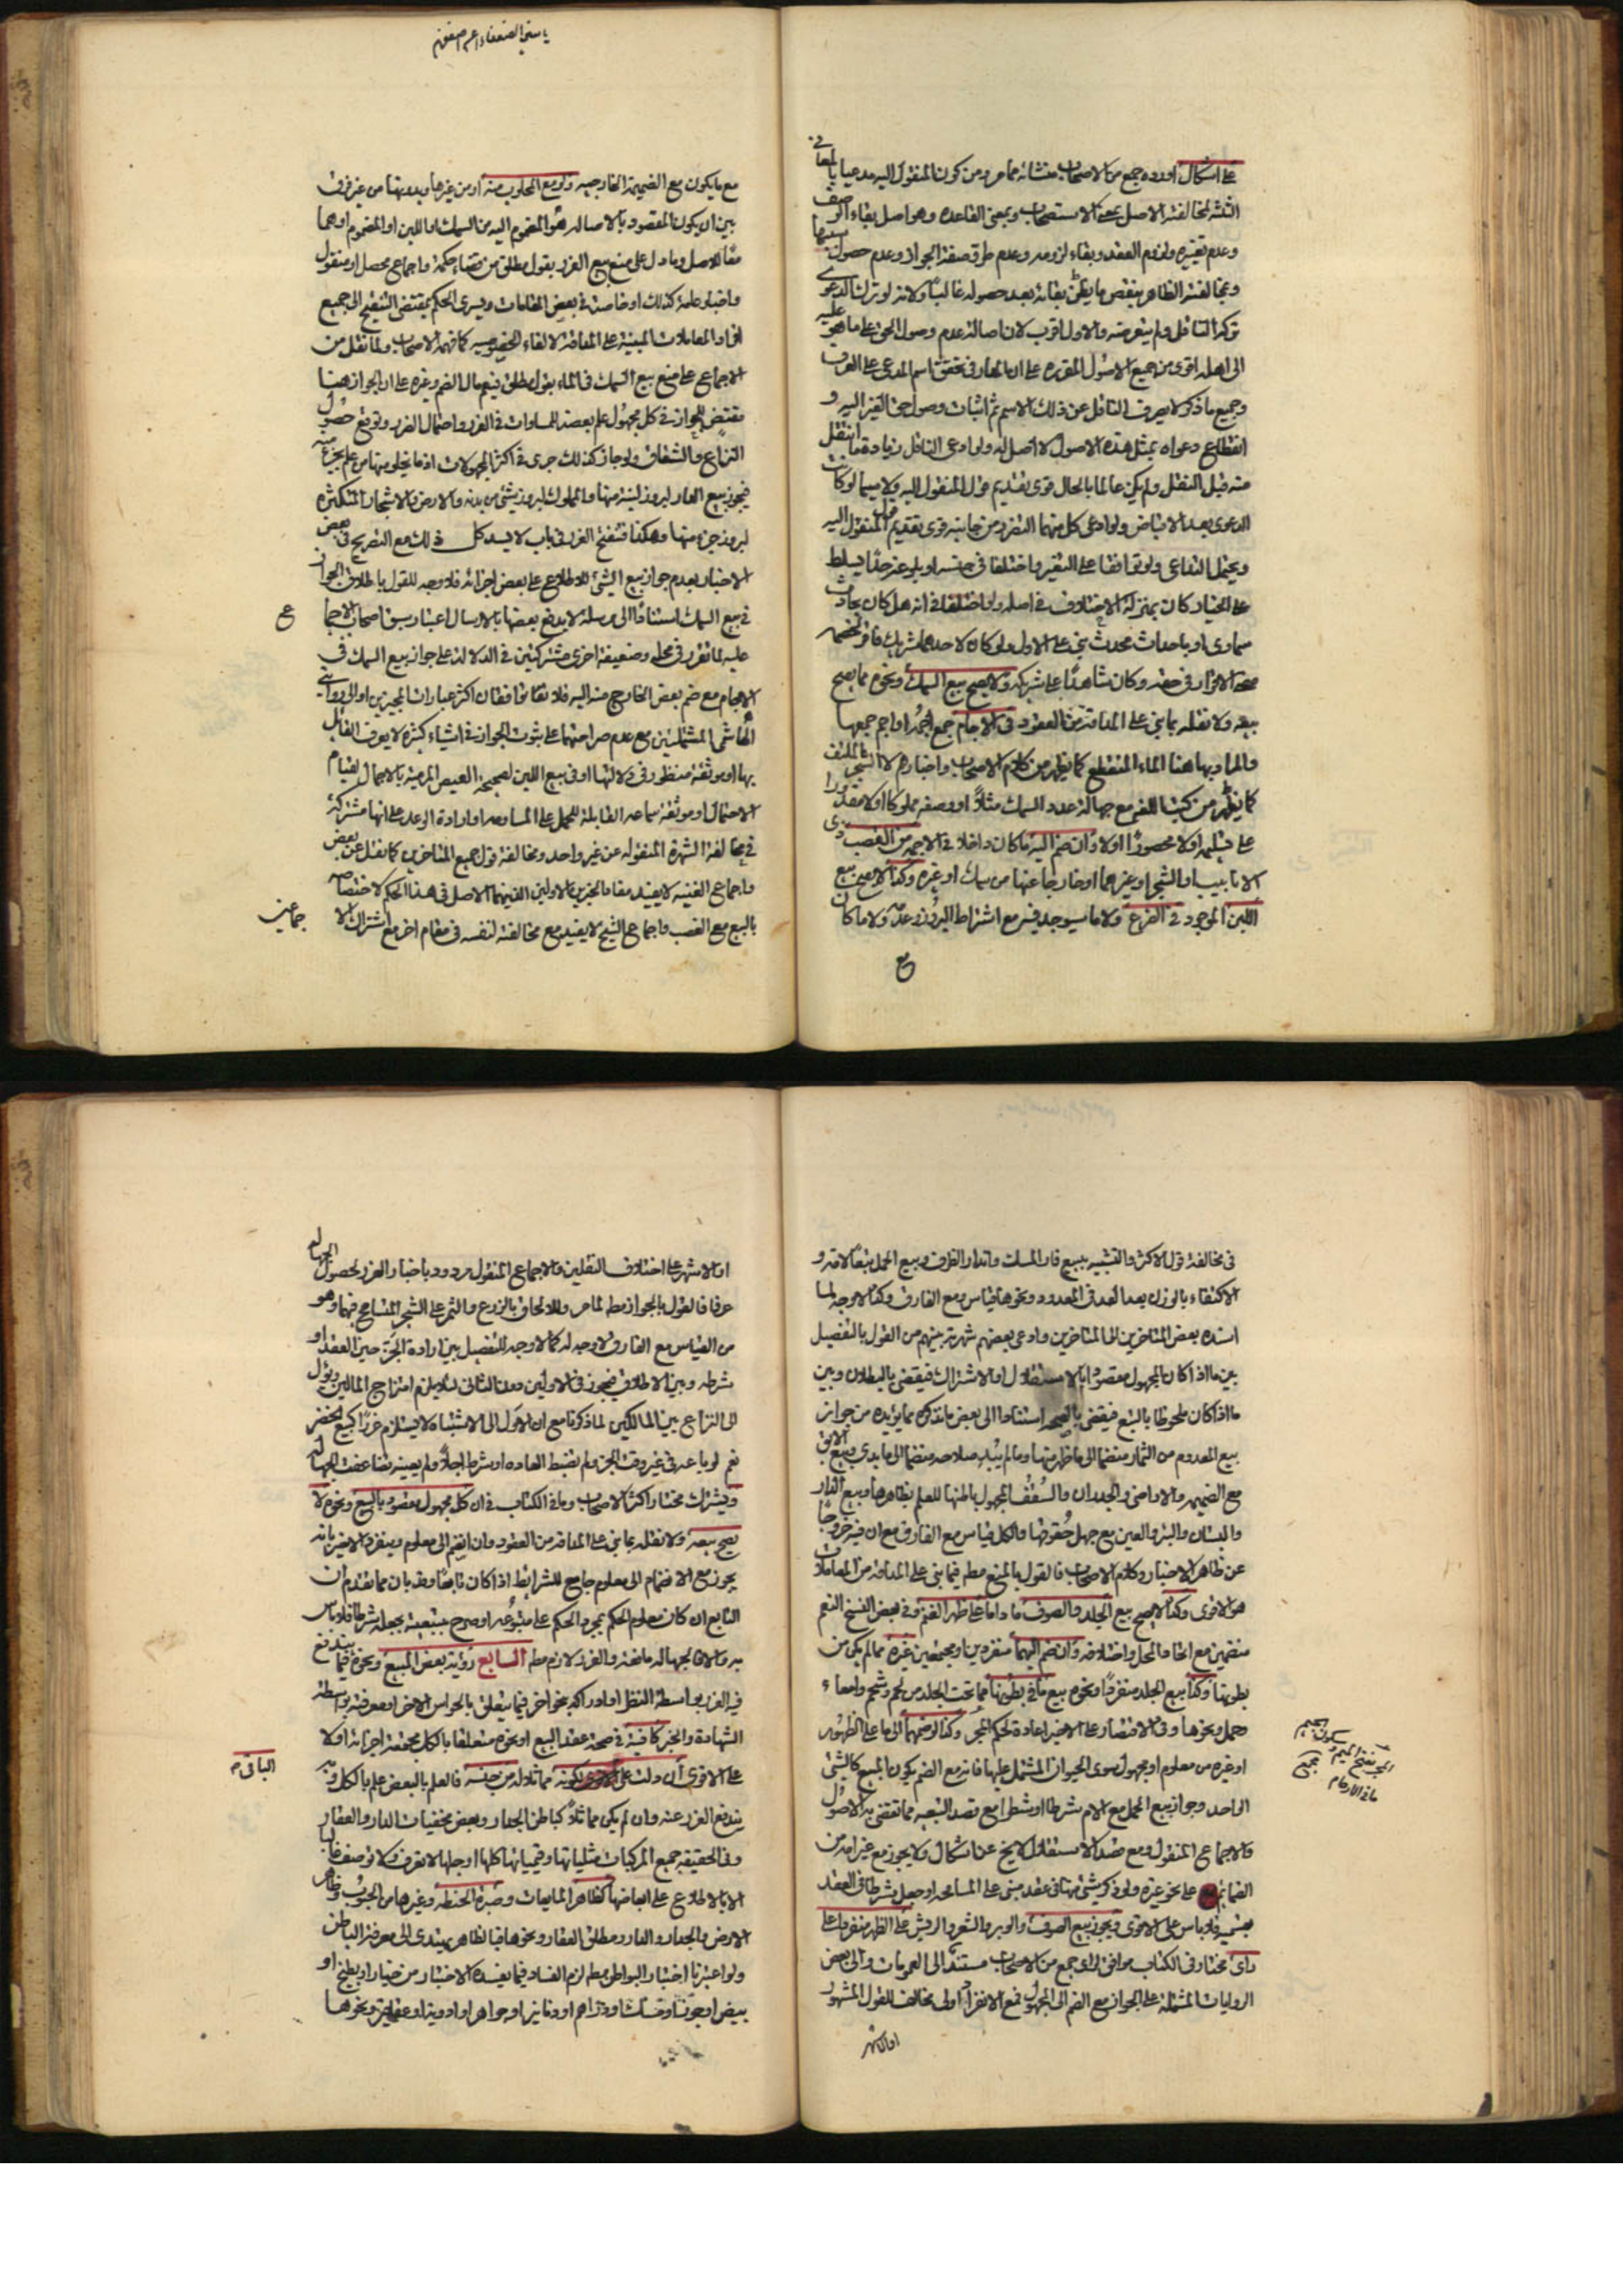 على اشكال اورده جمع من الاصحاب منشائه مما مر ومن كون المنقول اليه مدعيا بالمعاني
الثلثة لمخالفته الاصل بمعنى الاستصحاب وبمعنى القاعده وهو اصل بقاء الوصف
وعدم تغييره ولزوم العقد وبقاء لزومه وعدم طرو صفة الجواز وعدم حصول سببها
ومخالفته الظاهر بنقص ما يظن بقائه بعد حصوله غالبا ولانه لو ترك الدعوى
ترك الناقل ولم يتعرضه والاول اقرب لان اصالة عدم وصول الحق على ما هو عليه
الى اهله اقوى من جميع الاصول المقرره على ان المدار في تحقق اسم المدعي على العرف
وجميع ما ذكر لا يصرف الناقل عن ذلك الاسم ثم اثبات وصول حق الغير اليه و
انقطاع دعواه بمثل هذه الاصول لا اصل له ولو ادعى الناقل زيادة ما انتقل
منه قبل النقل ولم يكن عالما بالحال قوى تقديم قول المنقول اليه ولا سيما لو كانت
الدعوى بعد الاقباض ولو ادعى كل منهما التضرر من جانبه قوى تقديم قول المنقول اليه
ويحتمل التداعي ولو توافقا على التغير واختلفا في جنسه او بلوغه حدا يسلط
على الخيار كان بمنزلة الاختلاف في اصله ولو اختلفا في انه هل كان بحادث
سماوي او باحداث محدث بني على الاول ولو كان لاحدهما شريك فاقر لخصمه
صحة الاقرار في حقه وكان شاهدا على شريكه ولا يصح بيع السمك ونحوه مما يصح
بيعه ولا نقله بما بني على المداقة من العقود في الاجام جمع اجم او اجم جمعها
والمراد بها هنا الماء المنقطع كما يظهر من كلام الاصحاب واخبارهم لا الشجر الملتف
كما يظهر من كتب اللغه مع جهالة عدد السمك مثلا او وصفه مملوكا او لا مقدورا
على تسليمه او لا محصورا او لا وان ضم اليه ما كان داخلا في الاجمه من القصب دى
الانابيب او الشجر او غيرهما او خارجا عنها من سمك او غيره وكذا لا يصح بيع
اللبن الموجود في الضرع ولا ما سيوجد فيه مع اشتراط البروز وعدمه ولا ما كان
مع
يا سند الضعفاء
مع ما يكون مع الضميمة الخارجيه ولو مع المحلوب منه او من غيرها وبدونها من غير فرق
بين ان يكون المقصود بالاصاله هو المضموم اليه من السمك او اللبن او المضموم او هما
معا للاصل وما دل على منع بيع الغرر بقول مطلق من قضاء حكمة واجماع محصل او منقول
واخبار عامة كذلك او خاصة في بعض المقامات ويسري الحكم بمقتضى التنقيح الى جميع
افراد المعاملات المبنية على المداقة لالغاء الخصوصيه كما فهمه الاصحاب ولما نقل من
الاجماع على منع بيع السمك في الماء بقول مطلق فيعم مال الضم وغيره على ان الجواز هنا
مقتض للجواز في كل مجهول علم بعضه للمساوات في الغرر واحتمال الضرر وتوقع حصول
النزاع والشقاق ولو جاز كذلك جرى في اكثر المجهولات اذ ما يخلو منها من علم بجزء منه
فيجوز بيع الدار لبروز لبنة منها والمملوك لبروز شيء من بدنه والارض والاشجار المتكثره
لبروز جزء منها وهكذا فتفتح الغرر في باب لا يسد كل ذلك مع التصريح في بعض
الاخبار بعدم جواز بيع الشيء للاطلاع على بعض اجزائه فلا وجه للقول باطلاق الجواز
في بيع السمك استنادا الى مرسلة لا يدفع بعضها بالارسال اعتبار سبق اصحاب الاجماع
عليه لما تقرر في محله وضعيفة اخرى مشتركتين في الدلالة على جواز بيع السمك في
الاجام مع ضم بعض الخارج منه اليه فلا تعلقا فقان اكثر عبارات المجيزين او الى رواية
الهاشمي المشتملتين مع عدم صراحتهما على ثبوت الجواز في اشياء كثيرة لا يعرف القائل
بها او موثقة منظور في دلالتها او في بيع اللبن لصحيحة العيص المرميه بالاجمال لقيام
الاحتمال او موثقة سماعه القابلة للحمل على المساومه او ارادة الوعد على انها مشتركة
في مخالفة الشهرة المنقوله عن غير واحد ومخالفة قول جميع المتاخرين كما نقل عن بعض
واجماع الغنيه لا يفيد مفاد الخبرين الاولين اللذين هما الاصل في هذا الحكم لاختصاصه
بالبيع مع القصب واجماع الشيخ لا يفيد مع مخالفته لنفسه في مقام اخر مع اشتراك الاجماعين
في مخالفة قول الاكثر والتشبيه ببيع فار المسك واندار الظروف وبيع الحمل تبعا لامه و
الاكتفاء بالوزن بعد العد في المعدود ونحوها قياس ومع الفارق وكذا لا وجه لما
اسنده بعض المتاخرين الى المتاخرين وادعى بعضهم شهرته بينهم من القول بالتفصيل
بين ما اذا كان المجهول مقصودا بالاستقلال او الاشتراك فيقضى بالبطلان وبين
ما اذا كان ملحوظا بالتبع فيقضى بالصحه استنادا الى بعض ما تذكره مما يؤيده من جواز
بيع المعدوم من الثمار منضما الى ما ظهر منها وما لم يبد صلاحه منضما الى ما بدى وبيع الابق
مع الضميمه والاراضي والجدران والسقف المجهول بالمنها للعلم بظاهرها وبيع الدار
والبستان والبئر والعين مع جهل حقوقها والكل قياس مع الفارق مع ان فيه خروجا
عن ظاهر الاخبار وكلام الاصحاب فالقول بالمنع مطم فيما بني على المداقة من المعاملات
هو الاقوى وكذا لا يصح بيع الجلد والصوف ما داما على ظهر الغنم وفي بعض النسخ النعم
منضمين مع اتحاد المحل واختلافه وان ضم اليهما منفردين او مجتمعين غيره مما لم يكن من
بطونها وكذا بيع الجلد منفردا ونحوه بيع ما في بطونها مما تحت الجلد من لحم وشحم وامعاء
وحمل ونحوها وفي الاقتصار على الاخير اعادة لحكم المجر وكذا لو ضمهما الى ما على الظهور
او غيره من معلوم او مجهول سوى الحيوان المشتمل عليها فانه مع الضم يكون المبيع كالشيء
الواحد وجواز بيع الحمل مع الام شرطا او شطرا مع قصد التبعيه مما تقضى به الاصول
والاجماع المنقول ومع قصد الاستقلال لا يخ عن اشكال ولا يجوز مع غير امه من
الضمائم على نحو غيره ولو ذكر شيء منها في عقد مبني على المسامحه او جعل شرطا في العقد
بقسميه فلا باس على الاقوى ويجوز بيع الصوف والوبر والشعر والريش على الظهر منفردا على
راى مختار في الكتاب موافق لراى جمع من الاصحاب مستند الى العمومات والى بعض
الروايات المشتملة على الجواز مع الضم الى المجهول فمع الانفراد اولى مخالف للقول المشهور
او الاشهر
المجر بفتح الميم وسكون الجيم
ما في الارحام
او الاشهر على اختلاف النقلين والاجماع المنقول مردود باخبار الغرر لحصول الجهاله
عرفا فالقول بالجواز مطم لما مر وللالحاق بالزرع والثمر على الشجر المتسامح فيهما وهو
من القياس مع الفارق لا وجه له كما لا وجه للتفصيل بين ارادة الجز حين العقد او
شرطه وبين الاطلاق فيجوز في الاولين دون الثاني لئلا يلزم امتزاج المالين ويؤل
الى النزاع بين المالكين لما ذكرنا مع ان الاول الى الاشتباه لا يستلزم غررا كبيع الخضر
نعم لو باعه في غير وقت الجز ولم تضبط العاده او شرط اجلا ولم يعينه تضاعفت الجهاله
ويشترك مختار اكثر الاصحاب وما في الكتاب في ان كل مجهول مقصود بالبيع ونحوه لا
يصح بيعه ولا نقله بما بني على المداقه من العقود وان انضم الى معلوم وينفرد الاخير بانه
يجوز مع الانضمام الى معلوم جامع للشرائط اذا كان تابعا وقد بان مما تقدم ان
التابع ان كان معلوم الحكم بمجرد الحكم على متبوعه او صرح بتبعيته بجعله شرطا فلا باس
به والا فالجهاله مانعة والغرر لازم مطم السابع رؤية بعض المبيع ونحوه فيما يندفع
فيه الغرر بواسطة النظر او ادراكه بنحو اخر فيما يتعلق بالحواس الاخر او معرفته بواسطة
الشهادة والخبر كافية في صحة عقد البيع او نحوه متعلقا بالكل مجتمعة اجزائه او لا
على الاقوى ان دلت على الباقي لكونه مماثلا له من جنسه فالعلم بالبعض علم بالكل وبه
يندفع الغرر عنه وان لم يكن مماثلا كباطن الجدار وبعض مخفيات الدار والعقار
وفي الحقيقه جميع المركبات مثلياتها وقيمياتها كلها او جلها لا تعرف ولا توصف غالبا
الا بالاطلاع على ابعاضها كظاهر المايعات وصبرة الحنطة وغيرها من الحبوب وظاهر
الارض والجدار والدار ومطلق العقار ونحوها فبالظاهر يهتدى الى معرفة الباطن
ولو اعتبرنا اختبار البواطن مطم لزم الفساد فيما يفسده الاختبار من خيار او بطيخ او
بيض او جوز او مسك او دراهم او دنانير او جواهر او ادوية او عقاقير ونحوها
الباقي م